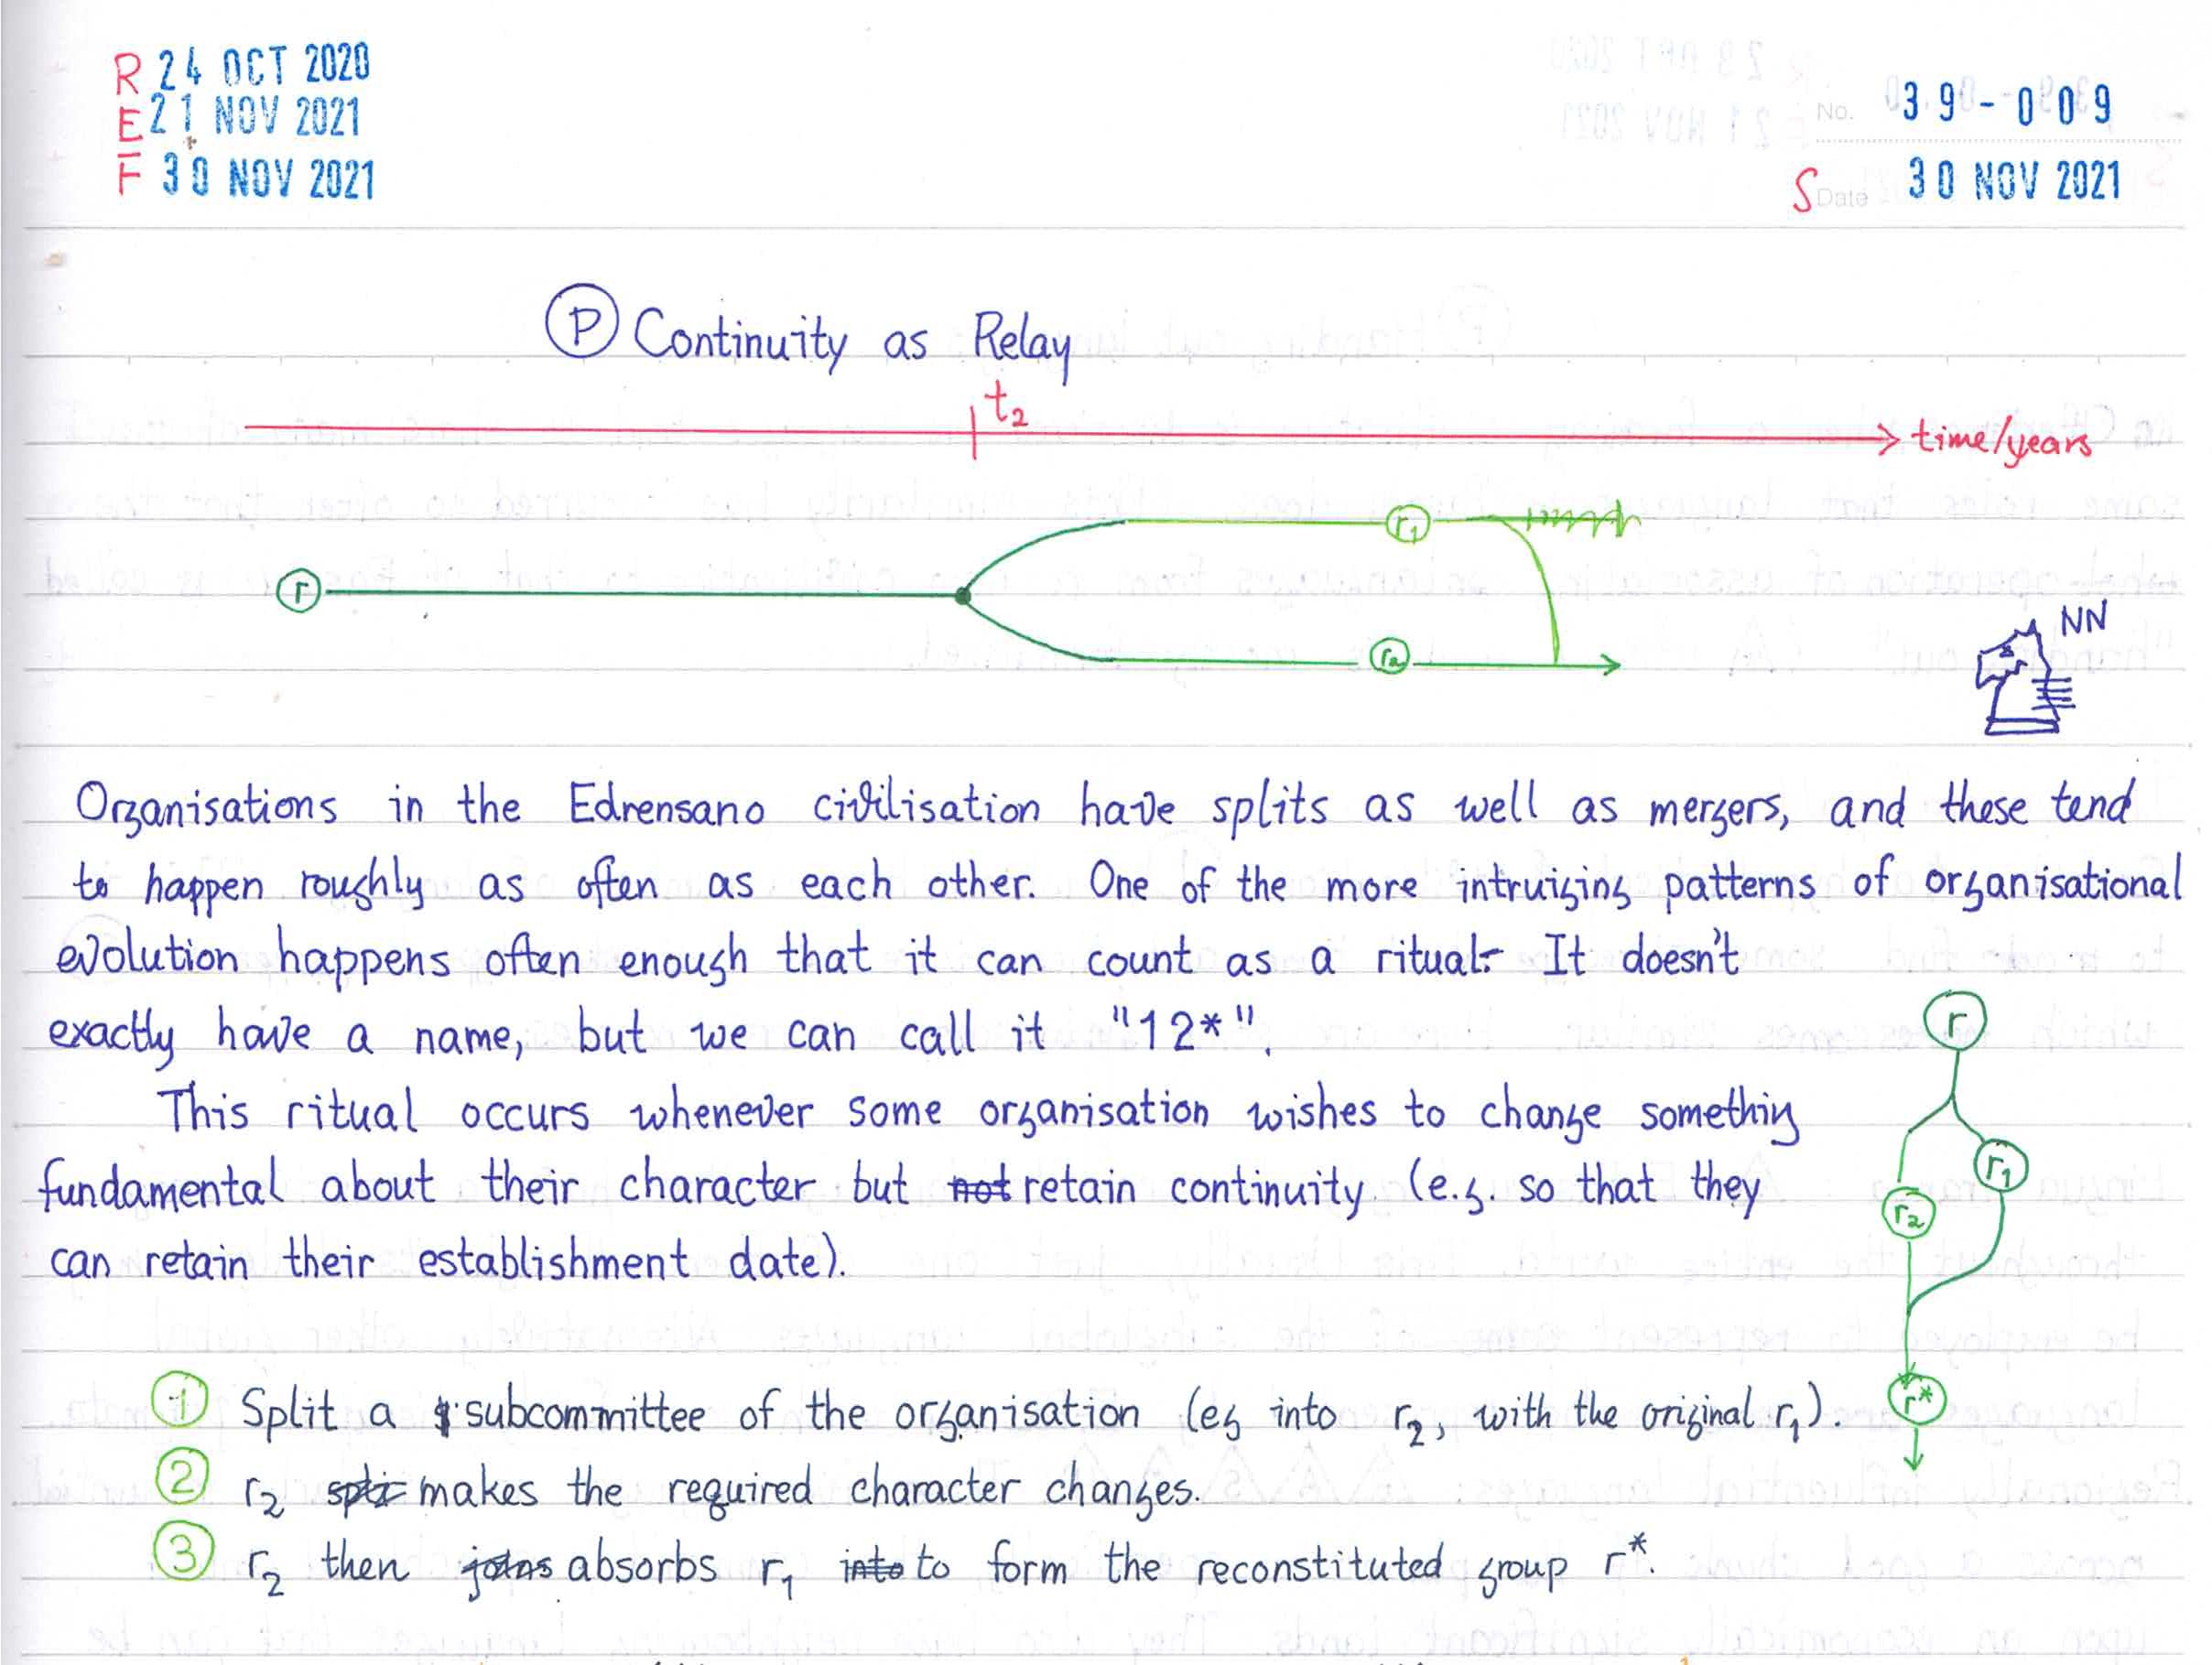 R 24 OCT 2020
E 21 NOV 2021
F 30 NOV 2021
No. 39-009
S Date 30 NOV 2021
P Continuity as Relay
t2
time/years
r1
r
r2
NN
Organisations in the Edrensano civilisation have splits as well as mergers, and these tend
to happen roughly as often as each other. One of the more intruiging patterns of organisational
evolution happens often enough that it can count as a ritual. It doesn't
exactly have a name, but we can call it "12*".
r
This ritual occurs whenever some organisation wishes to change somethin​g
fundamental about their character but not retain continuity (e.g. so that they
can retain their establishment date).
r1
r2
r*
1 Split a subcommittee of the organisation (eg into r2, with the original r1).
2 r2 makes the required character changes.
3 r2 then joins absorbs r1 into to form the reconstituted group r*.